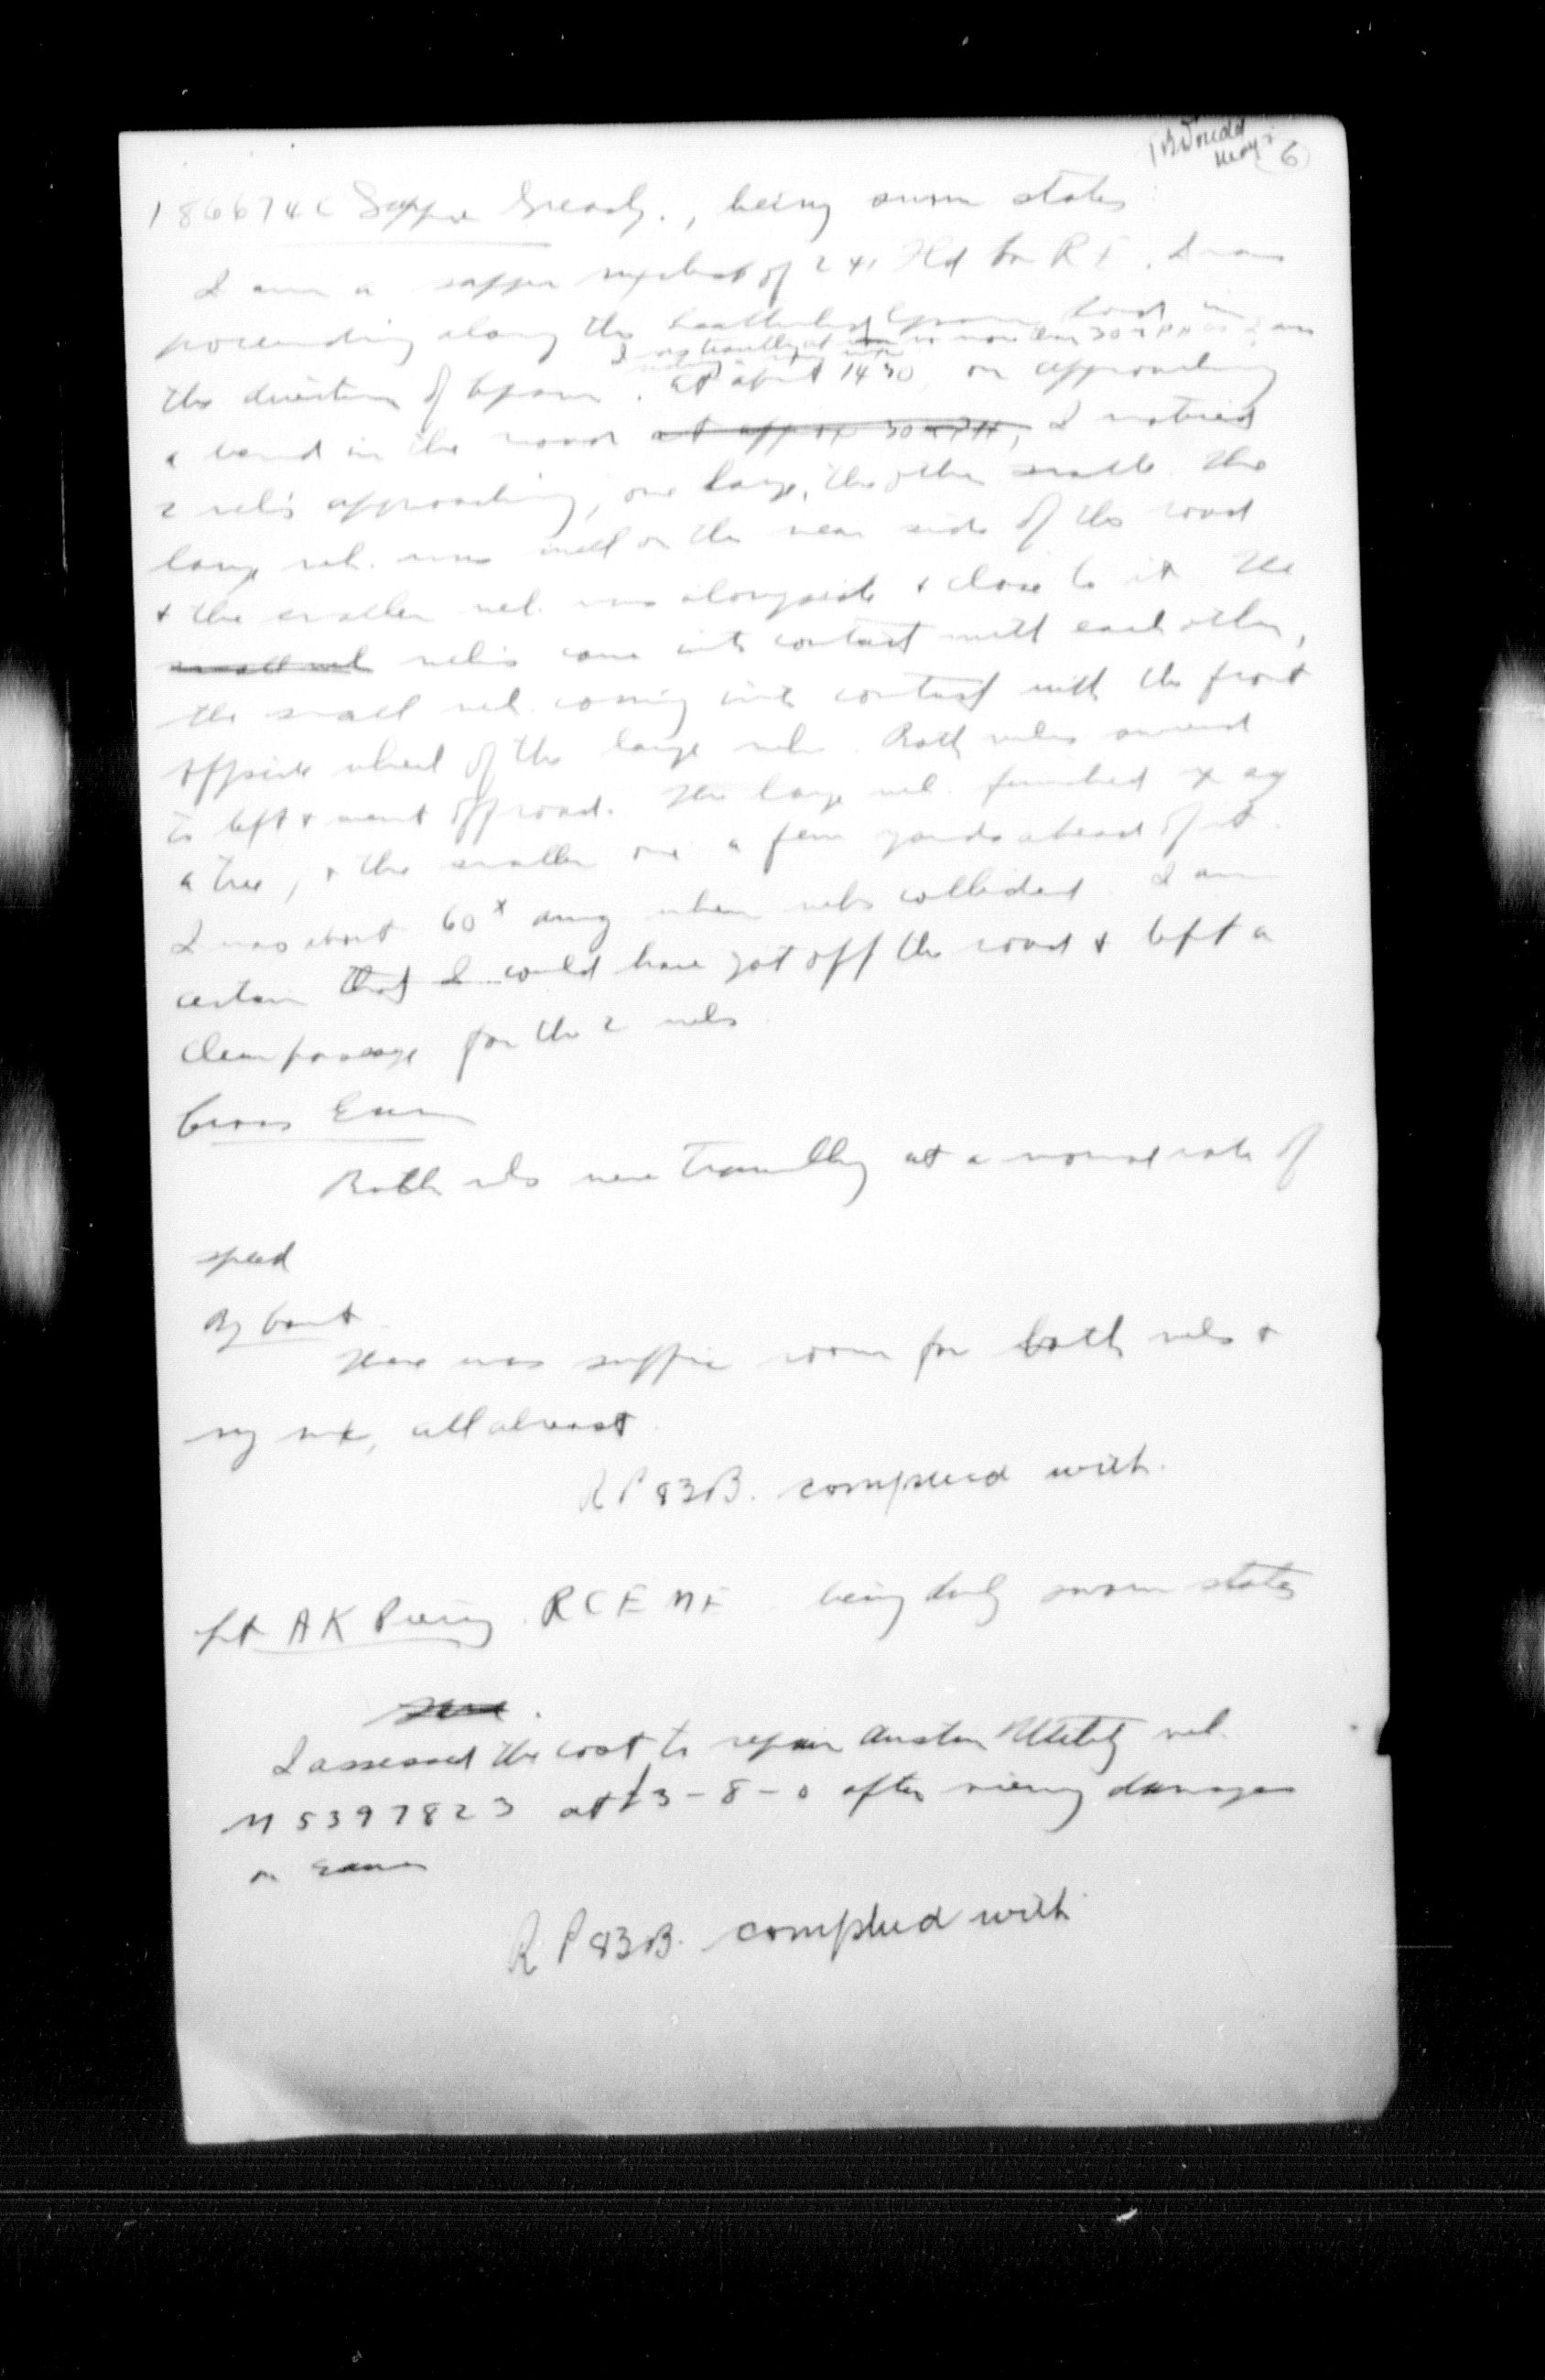 6
1866746 Sapper Gready., being sworn states:
I am a sapper of 241 Fld Coy R E. I was
proceeding along the Leatherhead Epsom Road in
I was travelling at no more than 30 MPH as I was
the direction of Epsom. At about 1430 on approaching
a bend in the road at approx 30 MPH, I noticed
2 veh's approaching, one large, the other small. The
large veh. was well on the near side of the road
+ the smaller veh. was alongside + close to it. The
small veh veh's came into contact with each other,
the small veh. coming into contact with the front
offside wheel of the large veh. Both vehs swerved
to left + went off road. The large veh. finished up ag
a tree, + the smaller one a few yards ahead of it.
I was about 60x away when vehs collided. I am
certain that I could have got off the road + left a
clear passage for the 2 vehs.
Cross Exam
Both vehs were travelling at a normal rate of
speed
By Court
There was suffic room for both vehs +
my m/c, all abreast.
R P 83B. complied with.
Lt A K RCEME being duly sworn states
I assessed the cost to repair Austin Utility veh.
M 5397823 at £3-8-0 after viewing damages
on same
R P 83B. complied with